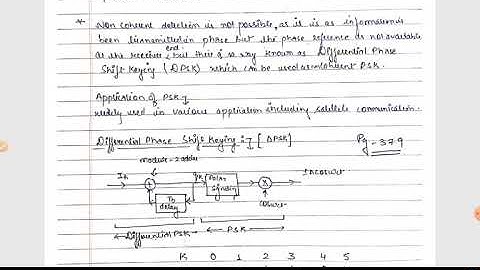 * Non coherent detection is not possible, as it is as information is
been transmitted in phase but the phase reference is not available
at the receiver end, but their is so way known as Differential Phase
Shift Keying (DPSK) which can be used as coherent PSK.
Application of PSK
widely used in various application including satellite communication.
Differential Phase Shift Keying :- [DPSK]
Pg - 379
modulo-2 adder
Tb
delay
Polar
Signaling
← Differential PSK → ← PSK →
K 0 1 2 3 4 5